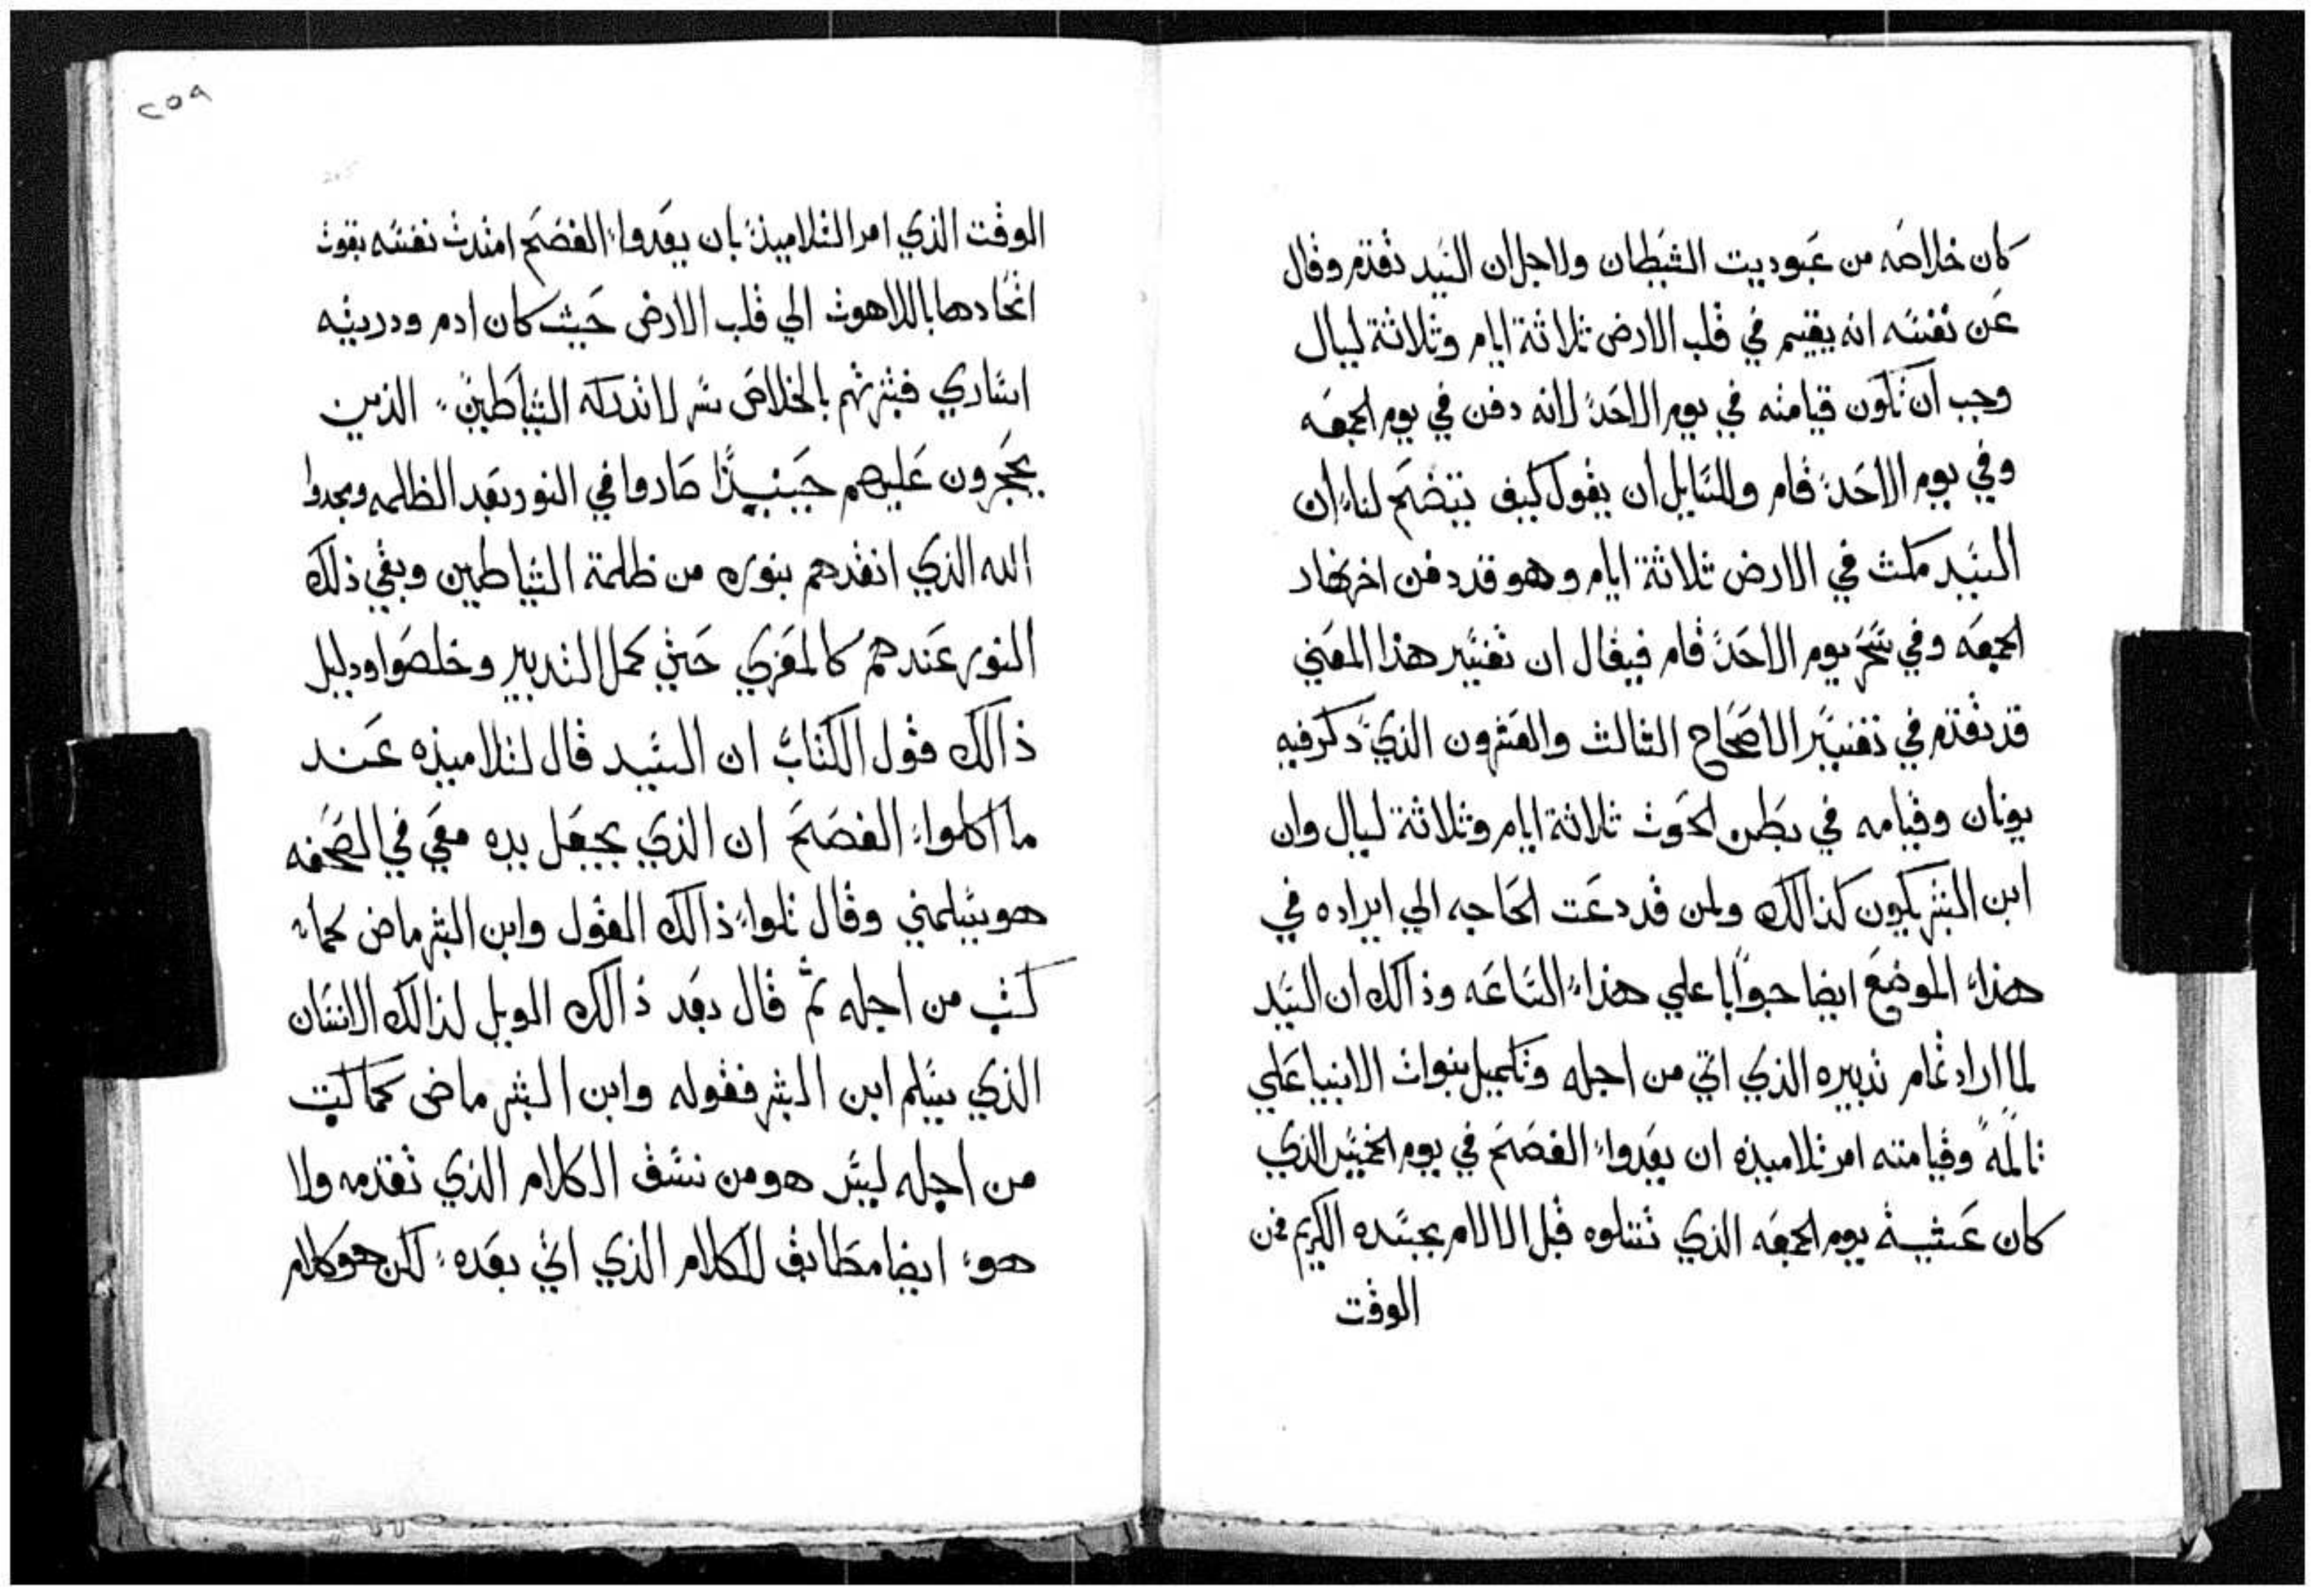 كان خلاصه من عبوديت الشيطان ولاجل ان السيد تقدم وقال
عن نفسه انه يقيم في قلب الارض ثلاثة ايام وثلاثة ليال
وجب ان تكون قيامته في يوم الاحد لانه دفن في يوم الجمعه
وفي يوم الاحد قام وللسايل ان يقول كيف يتضح لنا ان
السيد مكث في الارض ثلاثة ايام وهو قد دفن اخر نهار
الجمعه وفي سحر يوم الاحد قام فيقال ان تفسير هذا المعني
قد تقدم في تفسير الاصحاح الثالث والعشرون الذي ذكر فيه
يونان وقيامه في بطن الحوت ثلاثة ايام وثلاثة ليال وان
ابن البشر يكون كذالك ولمن قد دعت الحاجه الي ايراده في
هذا الموضع ايضا جوابا علي هذا الساعه وذالك ان السيد
لما اراد تمام تدبيره الذي اتي من اجله وتكميل بنوات الانبيا علي
تالمه وقيامته امر تلاميذه ان يعدوا الفصح في يوم الخميس الذي
كان عشية يوم الجمعه الذي تتلوه قبل الالام بجسده الكريم فمن
الوقت
٢٥٩
الوقت الذي امر التلاميذ بان يعدوا الفصح امتدت نفسه بقوت
اتحادها باللاهوت الي قلب الارض حيث كان ادم ودريته
اساري فبشرتهم بالخلاص سر لا تدركه الشياطين الذين
يحجرون عليهم حينيذ صاروا في النور بعد الظلمه ومجدوا
الله الذي انقدهم بنوره من ظلمة الشياطين وبقي ذلك
النور عندهم كالمعزي حتي كمل التدبير وخلصوا ودليل
ذالك قول الكتاب ان السيد قال لتلاميذه عند
ما اكلوا الفصح ان الذي يجعل يده معي في الصحفه
هو يسلمني وقال تلوا ذالك القول وابن البشر ماض كما
كتب من اجله ثم قال بعد ذالك الويل لذالك الانسان
الذي يسلم ابن البشر فقوله وابن البشر ماض كما كتب
من اجله ليس هو من نسق الكلام الذي تقدمه ولا
هو ايضا مطابق للكلام الذي اتي بعده لكن هو كلام